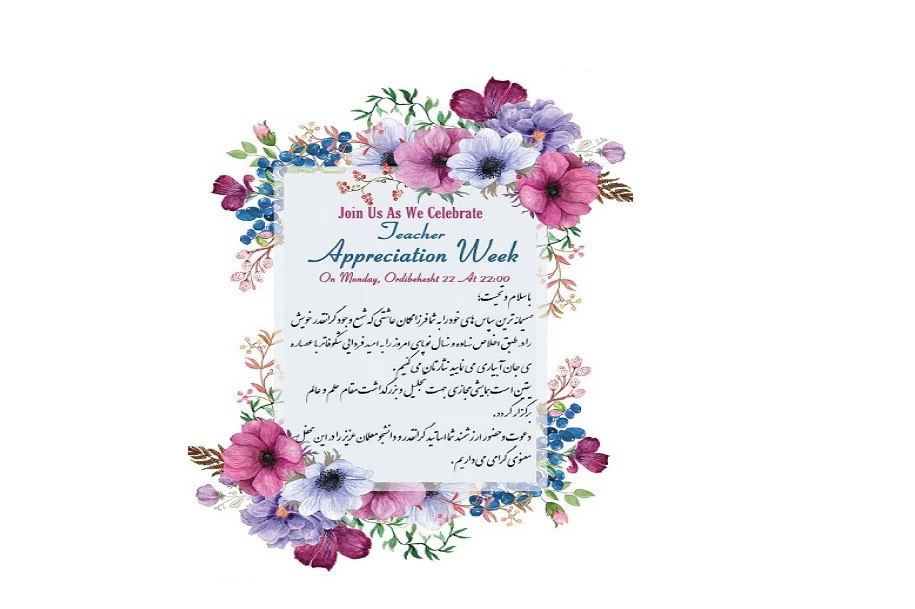 Join Us As We Celebrate
Teacher
Appreciation Week
On Monday, Ordibehesht 22 At 22:00
باسلام و تحیت؛
صمیمانه ترین سپاس های خود را به شما فرزانگان عاشقی که شمع وجود گرانقدر خویش
را در طبق اخلاص نهاده و نهال نوپای امروز را به امید فردایی شکوفاتر با عصاره
ی جان آبیاری می نمایید نثارتان می کنیم.
یقین است همایشی مجازی جهت تجلیل و بزرگداشت مقام علم و عالم
برگزار گردد.
دعوت و حضور ارزشمند شما اساتید گرانقدر و دانشجو معلمان عزیز را در این محفل
معنوی گرامی می داریم.